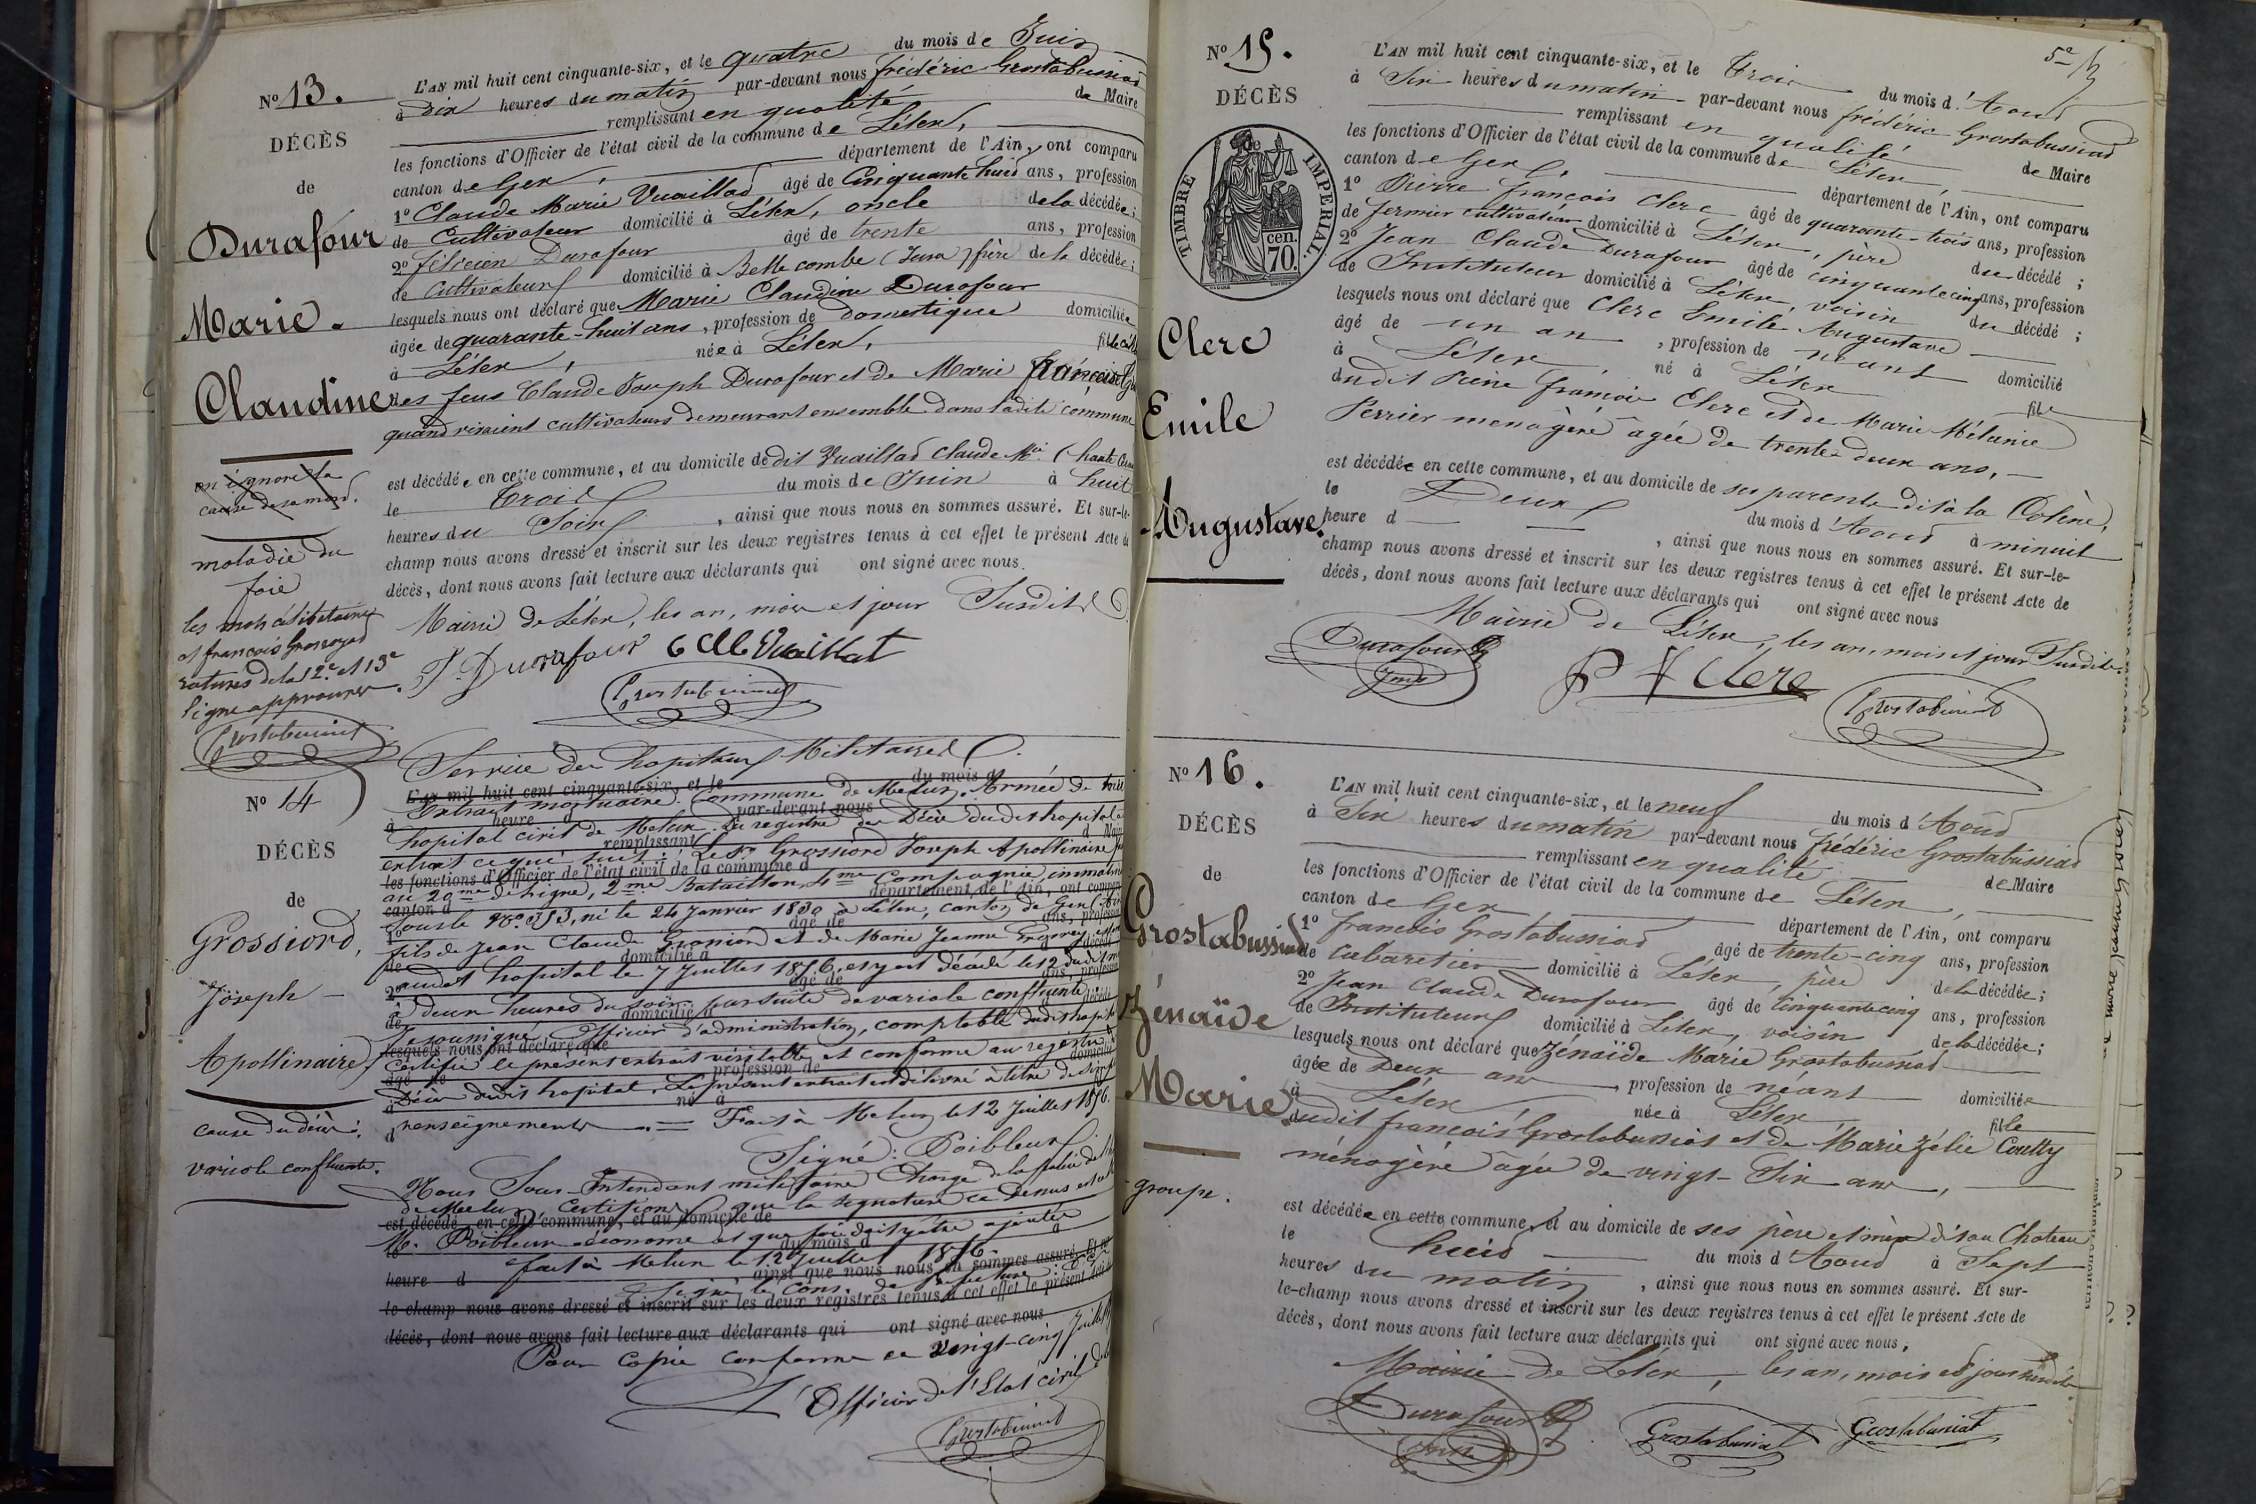 No 13.
DÉCÈS
de
Durafour
Marie.
Claudine
on ignore la
cause de sa mort.
maladie du
foie
les mots célibataires
et françois Grosroyad
ratures de la 12e et 13e
ligne approuvés.
Grostabussiat
L'AN mil huit cent cinquante-six, et le quatre du mois de Juin
à dix heures du matin par-devant nous frédéric Grostabussiad
remplissant en qualité de Maire
les fonctions d'Officier de l'état civil de la commune de Lélex,
canton de Gex, département de l'Ain, ont comparu
1o Claude Marie Vuaillad âgé de Cinquante huid ans, profession
de Cultivateur domicilié à Lélex, oncle de la décédée;
2o félicien Durafour âgé de trente ans, profession
de Cultivateur domicilié à Belle combe (Jura) frère de la décédée;
lesquels nous ont déclaré que Marie Claudine Durafour
âgée de quarante-huit ans, profession de domestique domiciliée
à Lélex, née à Lélex, fille
des feus Claude Joseph Durafour et de Marie françoise
quand vivaient cultivateurs demeurant ensemble dans ladite commune
est décédée en cette commune, et au domicile de dit Vuaillad Claude Mie
le trois du mois de Juin à huit
heures du Soir, ainsi que nous nous en sommes assuré. Et sur-le-
champ nous avons dressé et inscrit sur les deux registres tenus à cet effet le présent Acte de
décès, dont nous avons fait lecture aux déclarants qui ont signé avec nous.
Mairie de Lélex, les an, mois et jour Susdits
F. Durafour C M Vuaillat
Grostabussiat
No 14
DÉCÈS
de
Grossiord,
Joseph
Apollinaire
cause du décès:
variole confluente.
Service des hopitaux Militaires.
L'AN mil huit cent cinquante-six, et le du mois d
Extrait mortuaire. Commune de Melun. Armée de
à heure d par-devant nous
hopital civil de Melun. Du registre des Décès dudit hopital a été
remplissant d Maire
extrait ce qui suit: Le Sr Grossiord Joseph Apollinaire
les fonctions d'Officier de l'état civil de la commune d
au 20me de ligne, 2me Bataillon, 4me Compagnie, immatriculé
canton d département de l'Ain, ont comparu
Sous le No 353, né le 24 Janvier 1830 à Lélex, canton de Gex (Ain)
1o âgé de ans, profession
fils de Jean Claude Grossiord et de Marie Jeanne
de domicilié à décédé
audit hopital le 7 Juillet 1856, est y est décédé le 12 dudit
2o âgé de ans, profession
à deux heures du soir par suite de variole confluente.
de domicilié à décédé
Je soussigné Officier d'administration, comptable dudit hopital
lesquels nous ont déclaré que
Certifie le présent extrait véritable et conforme au registre
âgé de profession de domicilié
Décès dudit hopital. Le présent extrait est délivré à titre de
à né à
renseignements. Fait à Melun le 12 Juillet 1856.
d
Signé: Poibleur
Nous Sous-Intendant militaire Chargé de la police de
de Melun, Certifions que la signature ce Dessus est
est décédé en cette commune, et au domicile de
Mr Poibleur économe et que foi doit y être ajoutée
le du mois d à
fait à Melun le 12 Juillet 1856.
heure d ainsi que nous nous en sommes assuré. Et sur-
Signé le Cons. de préfecture
le-champ nous avons dressé et inscrit sur les deux registres tenus à cet effet le présent Acte de
décès, dont nous avons fait lecture aux déclarants qui ont signé avec nous
Pour Copie conforme ce vingt-cinq Juillet
L'Officier de l'Etat civil
Grostabussiat
5e
No 15.
DÉCÈS
de
TIMBRE IMPERIAL
70 cen.
Clerc
Emile
Augustave.
L'AN mil huit cent cinquante-six, et le trois du mois d'Aout
à Six heures du matin par-devant nous frédéric Grostabussiad
remplissant en qualité de Maire
les fonctions d'Officier de l'état civil de la commune de Lélex,
canton de Gex, département de l'Ain, ont comparu
1o Pierre françois Clerc âgé de quarante-trois ans, profession
de fermier cultivateur domicilié à Lélex, père du décédé;
2o Jean Claude Durafour âgé de cinquante cinq ans, profession
de Instituteur domicilié à Lélex, voisin du décédé;
lesquels nous ont déclaré que Clerc Emile Augustave
âgé de un an, profession de néant domicilié
à Lélex né à Lélex fils
dudit Pierre françois Clerc et de Marie Mélanie
Perrier menagère agée de trente deux ans,
est décédée en cette commune, et au domicile de ses parents dit à la Cotène,
le Deux du mois d'Aoud à minuit
heure d, ainsi que nous nous en sommes assuré. Et sur-le-
champ nous avons dressé et inscrit sur les deux registres tenus à cet effet le présent Acte de
décès, dont nous avons fait lecture aux déclarants qui ont signé avec nous
Mairie de Lélex, les an, mois et jour Susdits.
Durafour
P F Clerc
Grostabussiat
No 16.
DÉCÈS
de
Grostabussiad
Zénaïde
Marie
groupe.
L'AN mil huit cent cinquante-six, et le neuf du mois d'Aoud
à Six heures du matin par-devant nous frédéric Grostabussiad
remplissant en qualité de Maire
les fonctions d'Officier de l'état civil de la commune de Lélex,
canton de Gex département de l'Ain, ont comparu
1o françois Grostabussiad âgé de trente-cinq ans, profession
de cabaretier domicilié à Lélex, père de la décédée;
2o Jean Claude Durafour âgé de Cinquante cinq ans, profession
de Instituteur domicilié à Lélex, voisin de la décédée;
lesquels nous ont déclaré que Zénaïde Marie Grostabussiad
âgée de Deux ans, profession de néant domiciliée
à Lélex née à Lélex fille
dudit francois Grostabussiat et de Marie Zélie Coutty
ménagère agée de vingt-Six ans,
est décédée en cette commune, et au domicile de ses père et mère dit au Chateau
le huid du mois d'Aoud à Sept
heures du matin, ainsi que nous nous en sommes assuré. Et sur-
le-champ nous avons dressé et inscrit sur les deux registres tenus à cet effet le présent Acte de
décès, dont nous avons fait lecture aux déclarants qui ont signé avec nous,
Mairie de Lélex, les an, mois et jour susdits
Durafour
Grostabussiat Grostabussiat